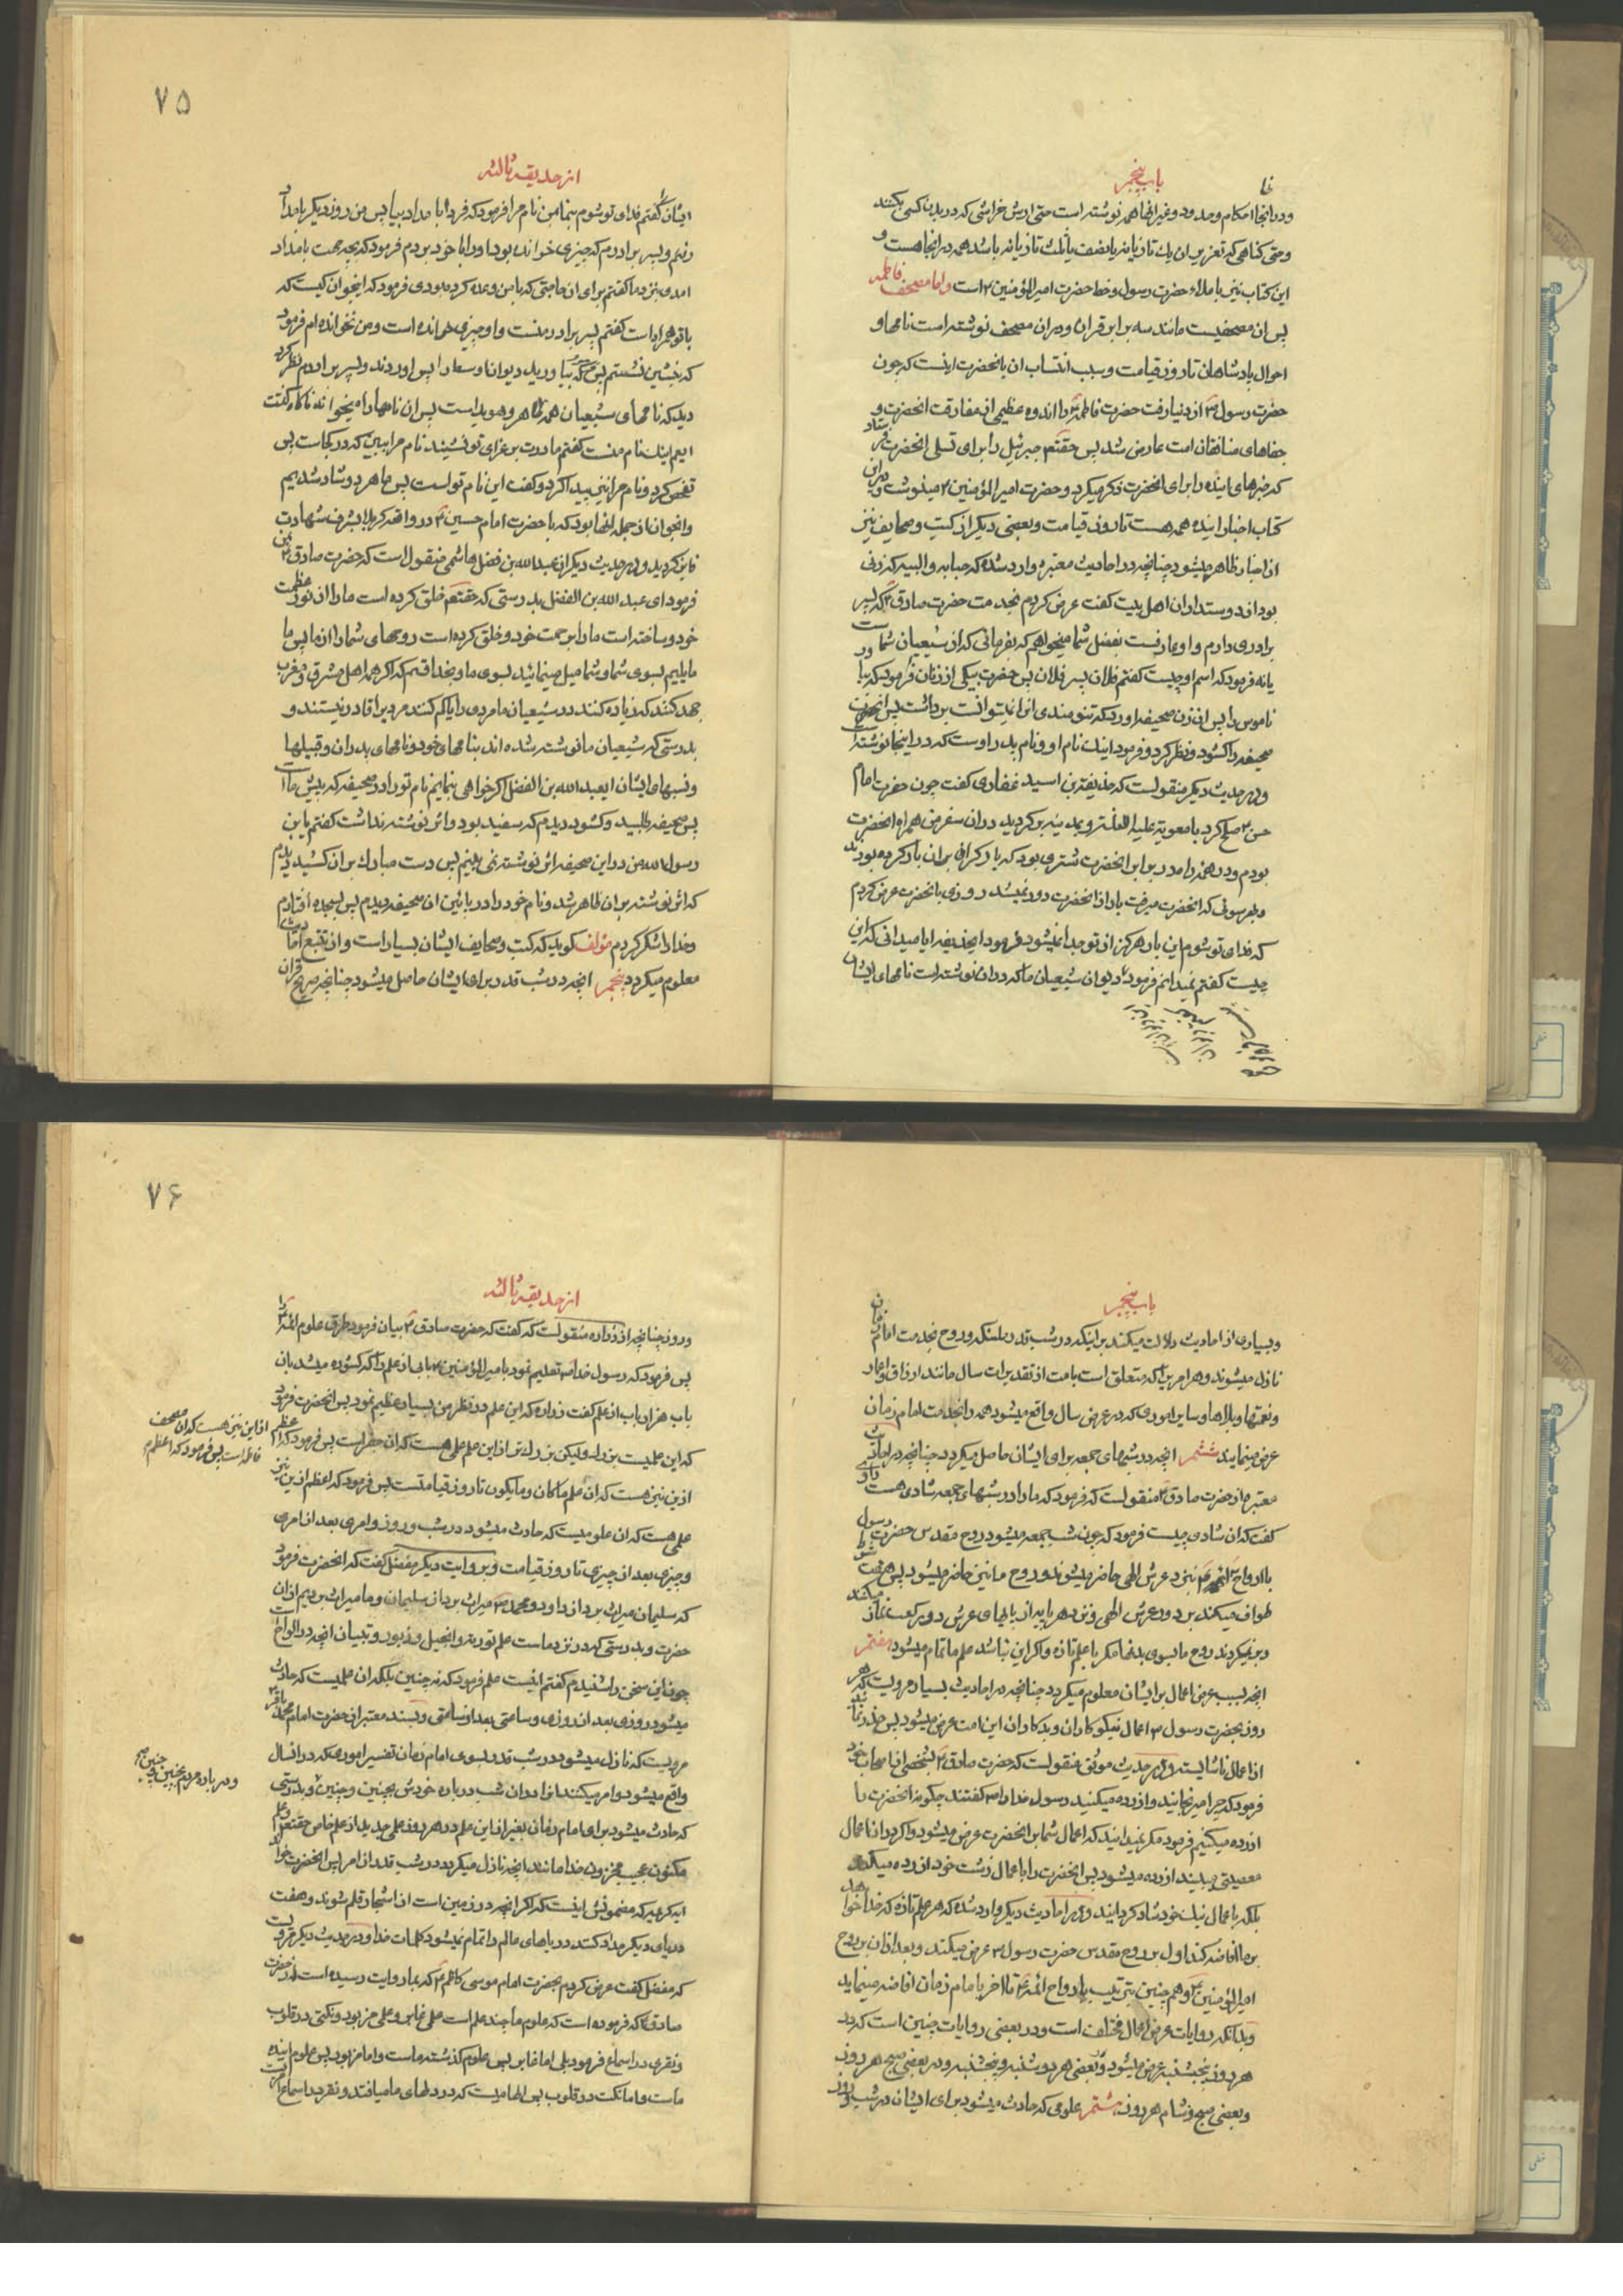 باب پنجم
و در انجا احکام و حدود و غیر انها همه نوشته است حتی ارش خراشی که در بدن کسی بکنند
و حتی کناهی که تعزیر ان یک تازیانه یا نصف یا ثلث تازیانه باشد همه در انجا هست و
این کتاب نیز باملاء حضرت رسول و خط حضرت امیرالمؤمنین ۴ است و اما مصحف فاطمه
پس ان مصحفیست مانند سه برابر قران و در ان مصحف نوشته است نامها و
احوال پادشاهان تا روز قیامت و سبب انتساب ان بانحضرت اینست که چون
حضرت رسول ص از دنیا رفت حضرت فاطمه ع را اندوه عظیمی از مفارقت انحضرت و
جفاهای منافقان امت عارض شد پس حقتعم جبرئیل را برای تسلی انحضرت فرستاد
که خبرهای اینده را برای انحضرت ذکر میکرد و حضرت امیرالمؤمنین ۴ مینوشت و در ان
کتاب اخبار اینده همه هست تا روز قیامت و بعضی دیگر از کتب و صحایف نیز
از اخبار ظاهر میشود چنانچه در احادیث معتبره وارد شده که حبابه والبیه که زنی
بود از دوستداران اهل بیت کفت عرض کردم بخدمت حضرت صادق ۴ که پسر
برادری دارم و او عارفست بفضل شما میخواهم که بفرمائی که از شیعیان شماست
یا نه فرمود که اسم او چیست کفتم فلان پسر فلان پس حضرت بیکی از زنان فرمود که بیاور
ناموس را پس ان زن صحیفه اورد که تنومندی انرا نمیتوانست برداشت پس انحضرت
صحیفه را کشود و نظر کرد و فرمود اینک نام او و نام پدر اوست که در اینجا نوشته است
و در حدیث دیگر منقولست که حذیفة بن اسید غفاری کفت چون حضرت امام
حسن ۴ صلح کرد با معویه علیه اللعنة و بمدینه برکردید در ان سفر من همراه انحضرت
بودم و در همه راه در برابر انحضرت شتری بود که بار کرانی بر ان بار کرده بودند
و بهر سوئی که انحضرت میرفت بار از انحضرت دور نمیشد روزی بانحضرت عرض کردم
که فدای تو شوم این بار هرکز از تو جدا نمیشود فرمود ایحذیفه ایا میدانی که این
چیست کفتم نمیدانم فرمود دیوان شیعیان ما که در ان نوشته است نامهای ایشان
۷۵
از حدیقه ثالثه
ایشان کفتم فدای تو شوم بنما بمن نام مرا فرمود که فردا بامداد بیا پس من روز دیگر بامداد
رفتم و پسر برادرم که چیزی خوانده بود او را با خود بردم فرمود که بچه جهت بامداد
امدی نزد ما کفتم برای ان حاجتی که با من وعده کرده بودی فرمود که اینجوان کیست که
با تو همراه است کفتم پسر برادر منست و او چیزی خوانده است و من نخوانده ام فرمود
که بنشین نشستم پس کفت بیاورید دیوان اوسط را پس اوردند و پسر برادرم نظر کرد
دید که نامهای شیعیان همه ظاهر و هویداست پس ان نامها را میخواند ناکاه کفت
ایعم اینک نام منست کفتم مادرت بعزای تو نشیند نام مرا ببین که در کجاست پس
تفحص کرد و نام مرا نیز پیدا کرد و کفت این نام تو است پس ما هر دو شاد شدیم
و انجوان از جمله انها بود که با حضرت امام حسین ۴ در واقعه کربلا بشرف شهادت
فایز کردید و در حدیث دیگر از عبد الله بن فضل هاشمی منقول است که حضرت صادق ۴ بمن
فرمود ای عبد الله بن الفضل بدرستی که حقتعم خلق کرده است ما را از نور عظمت
خود و ساخته است ما را برحمت خود و خلق کرده است روحهای شما را از ما پس ما
مایلیم بسوی شما و شما میل مینمائید بسوی ما و بخدا قسم که اکر همه اهل مشرق و مغرب
جهد کنند که زیاده کنند در شیعیان ما مردی را یا کم کنند مردیرا قادر نیستند و
بدرستی که شیعیان ما نوشته شده اند بنامهای خود و نامهای پدران و قبیلها
و نسبهای ایشان ایعبد الله بن الفضل اکر خواهی بنمایم نام تو را در صحیفه که پیش ما است
پس صحیفه طلبید و کشود دیدم که سفید بود و اثر نوشته نداشت کفتم یابن
رسول الله من در این صحیفه اثر نوشته نمی بینم پس دست مبارک بر ان کشید دیدم
که اثر نوشته بر ان ظاهر شد و نام خود را در پائین ان صحیفه دیدم پس بسجده افتادم
و خدا را شکر کردم مؤلف کوید که کتب و صحایف ایشان بسیار است و از تتبع احادیث
معلوم میکردد پنجم انچه در شب قدر برای ایشان حاصل میشود چنانچه صریح قران
باب پنجم
و بسیاری از احادیث دلالت میکند بر اینکه در شب قدر ملئکه و روح بخدمت امام زمان
نازل میشوند و هر امریرا که متعلق است بامت از تقدیرات سال مانند ارزاق و اعمار
و نعمتها و بلاها و سایر اموری که در عرض سال واقع میشود همه را بخدمت امام زمان
عرض مینمایند ششم انچه در شبهای جمعه برای ایشان حاصل میکردد چنانچه در احادیث
معتبره از حضرت صادق ۴ منقولست که فرمود که ما را در شبهای جمعه شادی هست راوی
کفت که ان شادی چیست فرمود که چون شب جمعه میشود روح مقدس حضرت رسول
با ارواح ائمه ۴ نزد عرش الهی حاضر میشوند و روح ما نیز حاضر میشود پس هفت شوط
طواف میکنند بر دور عرش الهی و نزد هر پایه از پایهای عرش دو رکعت نماز میکنند
و بر نمیکردند روح ما بسوی بدنها مکر با علم تازه و اکر این نباشد علم ما تمام میشود هفتم
انچه بسبب عرض اعمال بر ایشان معلوم میکردد چنانچه در احادیث بسیار مرویست که هر
روز بحضرت رسول ص اعمال نیکوکاران و بدکاران این امت عرض میشود پس حذر نمائید
از اعمال ناشایسته و در حدیث موثق منقولست که حضرت صادق ۴ بشخصی از اصحاب خود
فرمود که چرا میرنجانید و ازرده میکنید رسول خدا را ص کفتند چکونه انحضرت را
ازرده میکنیم فرمود مکر نمیدانید که اعمال شما بر انحضرت عرض میشود و اکر در ان اعمال
معصیتی میبیند ازرده میشود پس انحضرت را باعمال زشت خود ازرده میکنید
بلکه باعمال نیک خود شاد کردانید و در احادیث دیگر وارد شده که هر علم تازه که خدا خواهد
بر ما افاضه کند اول بر روح مقدس حضرت رسول ص عرض میکند و بعد از ان بر روح
امیرالمؤمنین ۴ و همچنین بترتیب بارواح ائمه ۴ تا اخر بامام زمان افاضه مینماید
و بدانکه روایات عرض اعمال مختلف است و در بعضی روایات چنین است که در
هر روز پنجشنبه عرض میشود و بعضی هر دوشنبه و پنجشنبه و در بعضی صبح هر روز
و بعضی صبح و شام هر روز هشتم علومی که حادث میشود برای ایشان در شب و روز
۷۶
از حدیقه ثالثه
و روز چنانچه از زراره منقولست که کفت که حضرت صادق ۴ بیان فرمود طرق علوم ائمه را
پس فرمود که رسول خدا ص تعلیم نمود بامیرالمؤمنین ۴ بابی از علم را که کشوده میشد بان
باب هزار باب از علم کفت زراره که این علم در نظر من بسیار عظیم نمود پس انحضرت فرمود
که این علمیست بزرک ولیکن بزرک تر از این علم علمی هست که ان جفر است پس فرمود که اعظم
از این نیز هست که ان مصحف
فاطمه است پس فرمود که اعظم
ازین نیز هست که ان علم ماکان و مایکون تا روز قیامتست پس فرمود که اعظم ازین نیز
علمی هست که ان علومیست که حادث میشود در شب و روز و امری بعد از امری
و چیزی بعد از چیزی تا روز قیامت و بروایت دیگر مفضل کفت که انحضرت فرمود
که سلیمان میراث برد از داود و محمد ص میراث برد از سلیمان و ما میراث بردیم از ان
حضرت و بدرستی که در نزد ماست علم توریة و انجیل و زبور و تبیان انچه در الواح است
چون این سخن را شنیدم کفتم اینست علم فرمود که نه چنین بلکه ان علمیست که حادث
میشود روزی بعد از روزی و ساعتی بعد از ساعتی و بسند معتبر از حضرت امام محمد باقر ۴
مرویست که نازل میشود در شب قدر بسوی امام زمان تفسیر اموری که در انسال
واقع میشود و امر میکنند او را در ان شب درباره خودش بچنین و چنین و بدرستی
و در باره مردم بچنین و چنین
که حادث میشود برای امام زمان بغیر از این علم در هر روز علمی جدید از علم خاص حقتعم و علم
مکنون عجیب مخزون خدا مانند انچه نازل میکردد در شب قدر از امر پس انحضرت خواند
ایه کریمه که مضمونش اینست که اکر انچه در زمین است از اشجار قلم شوند و هفت
دریای دیگر مداد کنند دریاهای عالم را تمام نمیشود کلمات خدا و در حدیث دیگر مرویست
که مفضل کفت عرض کردم بحضرت امام موسی کاظم ۴ که بما روایت رسیده است از حضرت
صادق ۴ که فرموده است که علوم ما چند علم است علمی غابر و علمی مزبور و نکتی در قلوب
و نقری در اسماع فرمود بلی اما غابر پس علوم کذشته ماست و اما مزبور پس علوم اینده
ماست و اما نکت در قلوب پس الهامیست که در دلهای ما میافتد و نقر در اسماع